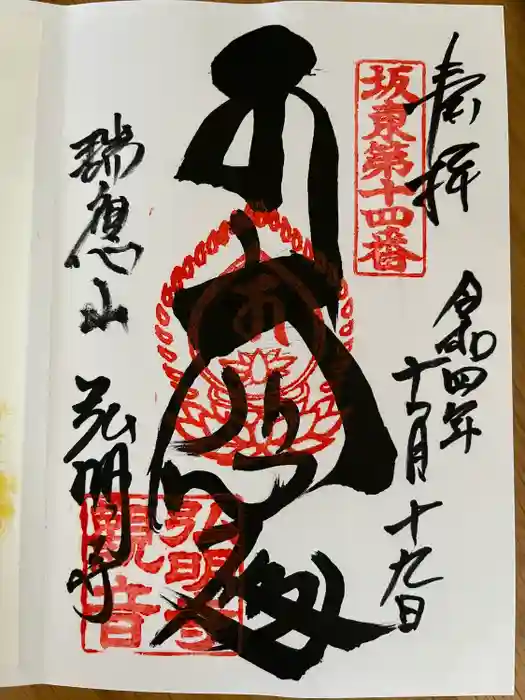 奉拝
坂東第十四番
令和四年
十一月十九日
瑞應山 弘明寺
弘明寺
觀音